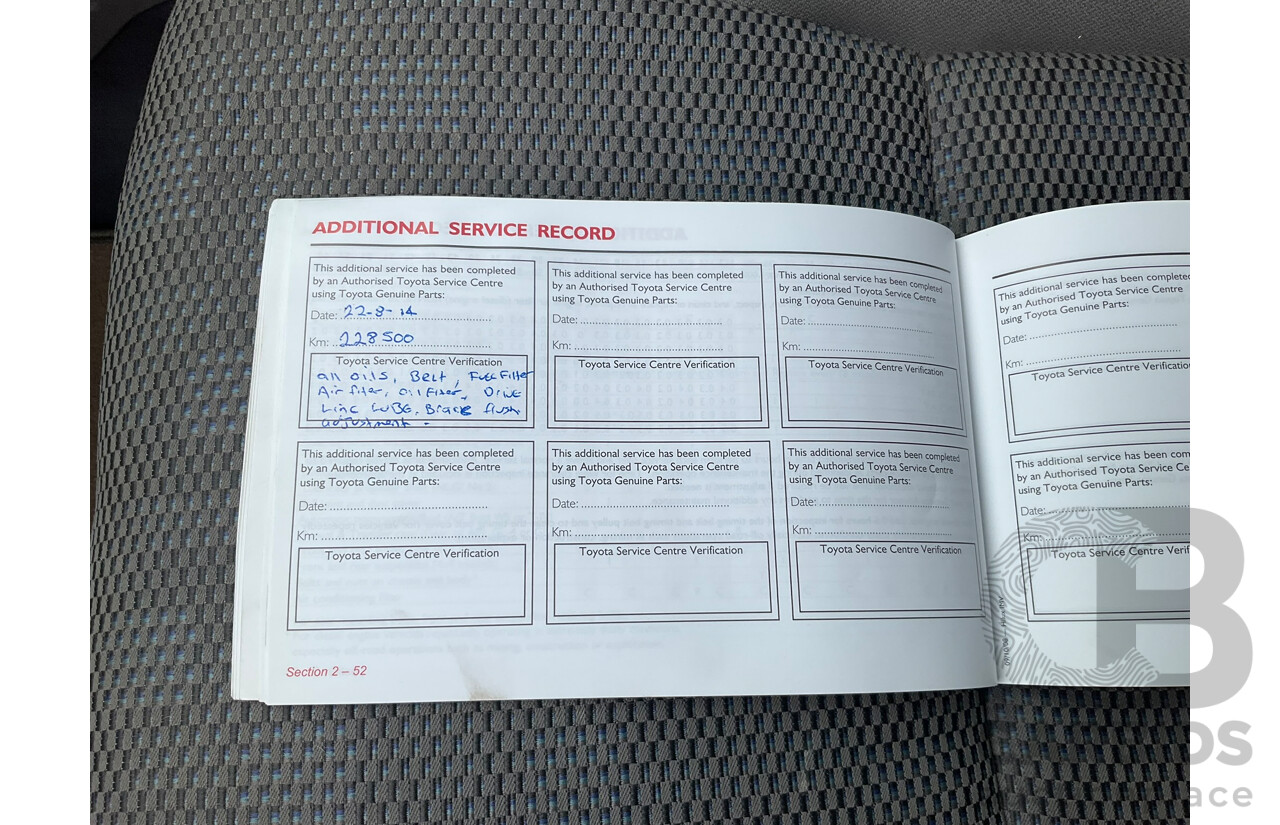 ADDITIONAL SERVICE RECORD
This additional service has been completed
by an Authorised Toyota Service Centre
using Toyota Genuine Parts:
Date: 22-8-14
Km: 228500
Toyota Service Centre Verification
all oils, Belt, Fuel Filter
Air filter, oil Filter, Drive
Line LUBE, Brake flush
adjustment.
This additional service has been completed
by an Authorised Toyota Service Centre
using Toyota Genuine Parts:
Date:
Km:
Toyota Service Centre Verification
This additional service has been completed
by an Authorised Toyota Service Centre
using Toyota Genuine Parts:
Date:
Km:
Toyota Service Centre Verification
This additional service has been completed
by an Authorised Toyota Service Centre
using Toyota Genuine Parts:
Date:
Km:
Toyota Service Centre Verification
This additional service has been completed
by an Authorised Toyota Service Centre
using Toyota Genuine Parts:
Date:
Km:
Toyota Service Centre Verification
This additional service has been completed
by an Authorised Toyota Service Centre
using Toyota Genuine Parts:
Date:
Km:
Toyota Service Centre Verification
Section 2 – 52
This additional service has been complete
by an Authorised Toyota Service Centre
using Toyota Genuine Parts:
Date:
Km:
Toyota Service Centre Verificatio
This additional service has been com
by an Authorised Toyota Service Ce
using Toyota Genuine Parts:
Date:
Km:
Toyota Service Centre Verif
B
os
ace